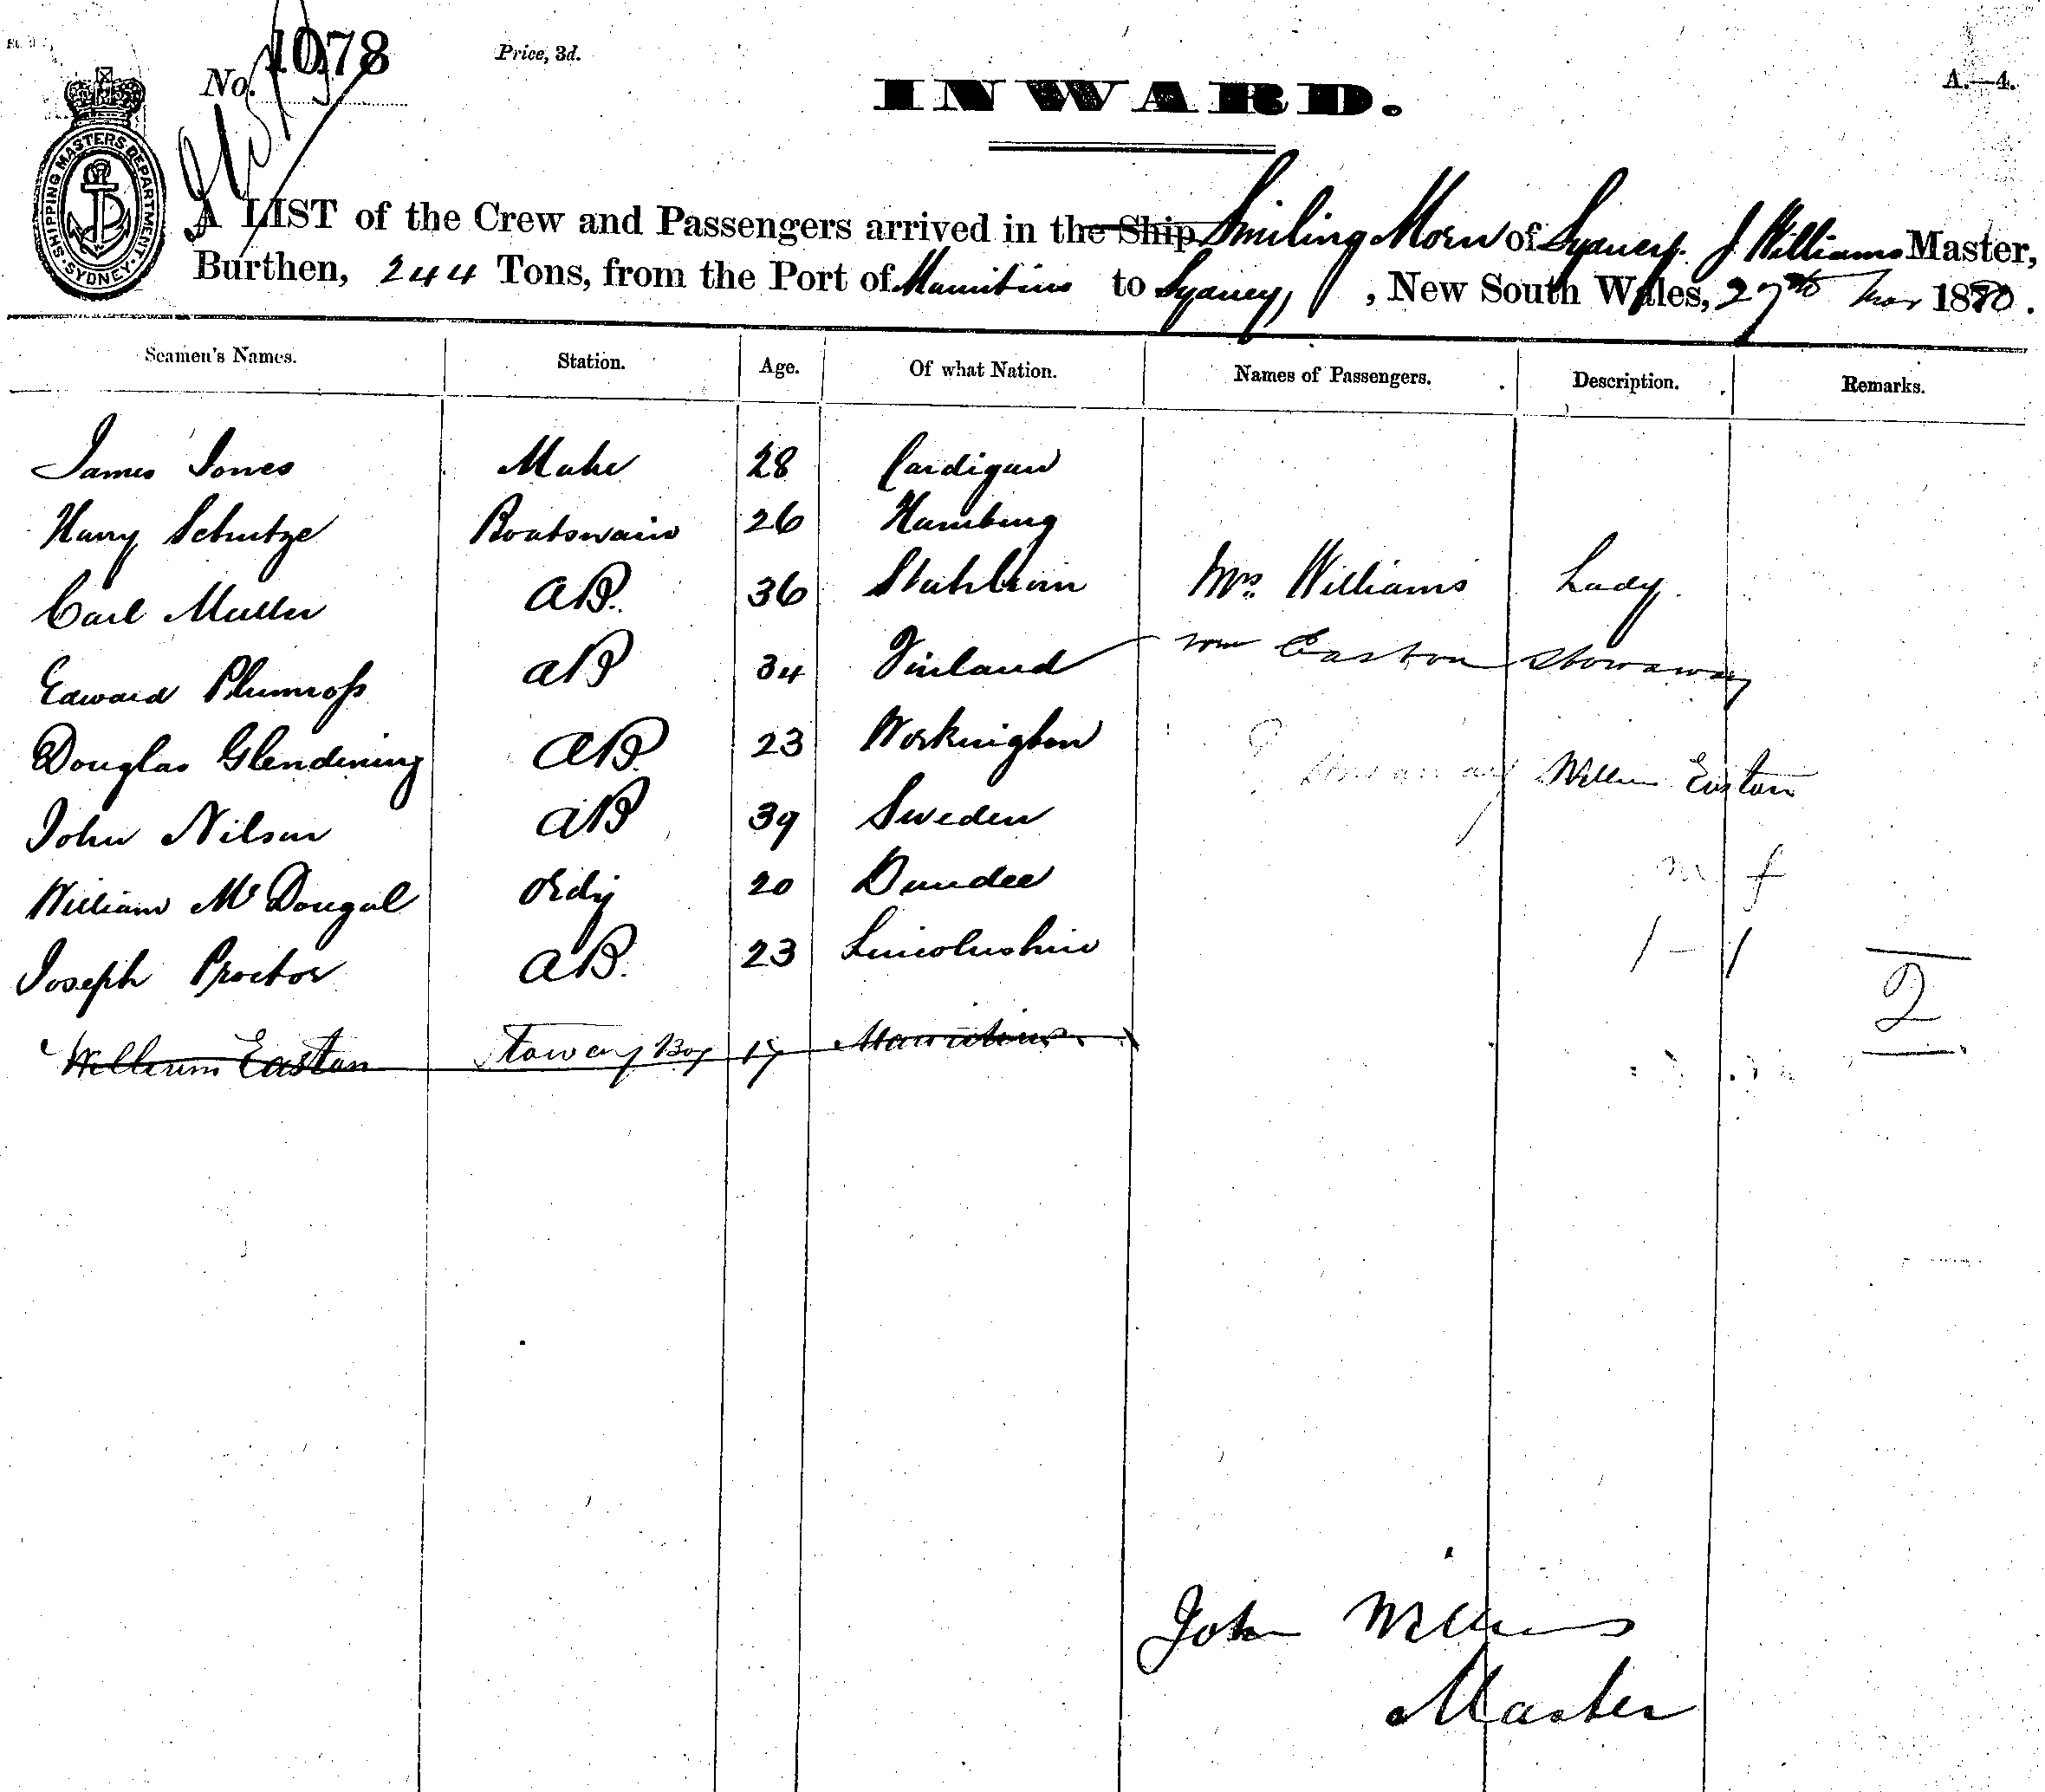 No. 1078
Price, 3d.
INWARD.
A.—4.
SHIPPING MASTERS DEPARTMENT SYDNEY
A LIST of the Crew and Passengers arrived in the Ship Smiling Morn of Sydney. J Williams Master,
Burthen, 244 Tons, from the Port of Mauritius to Sydney, , New South Wales, 27th Mar 1880.
Seamen's Names. Station. Age. Of what Nation. Names of Passengers. Description. Remarks.
James Jones Mate 28 Cardigan
Harry Schutze Boatswain 26 Hamburg
Carl Muller AB. 36 Mrs. Williams Lady.
Edward Plumross AB 34 Finland Wm Easton Stowaway
Douglas Glendining AB. 23 Workington
William Easton
John Nilsun AB 39 Sweden
William McDougal Ordy 20 Dundee m f
Joseph Proctor AB. 23 Lincolnshire 1 - 1
2
William Easton Stoway Boy 17 Mauritius
John Williams
Master